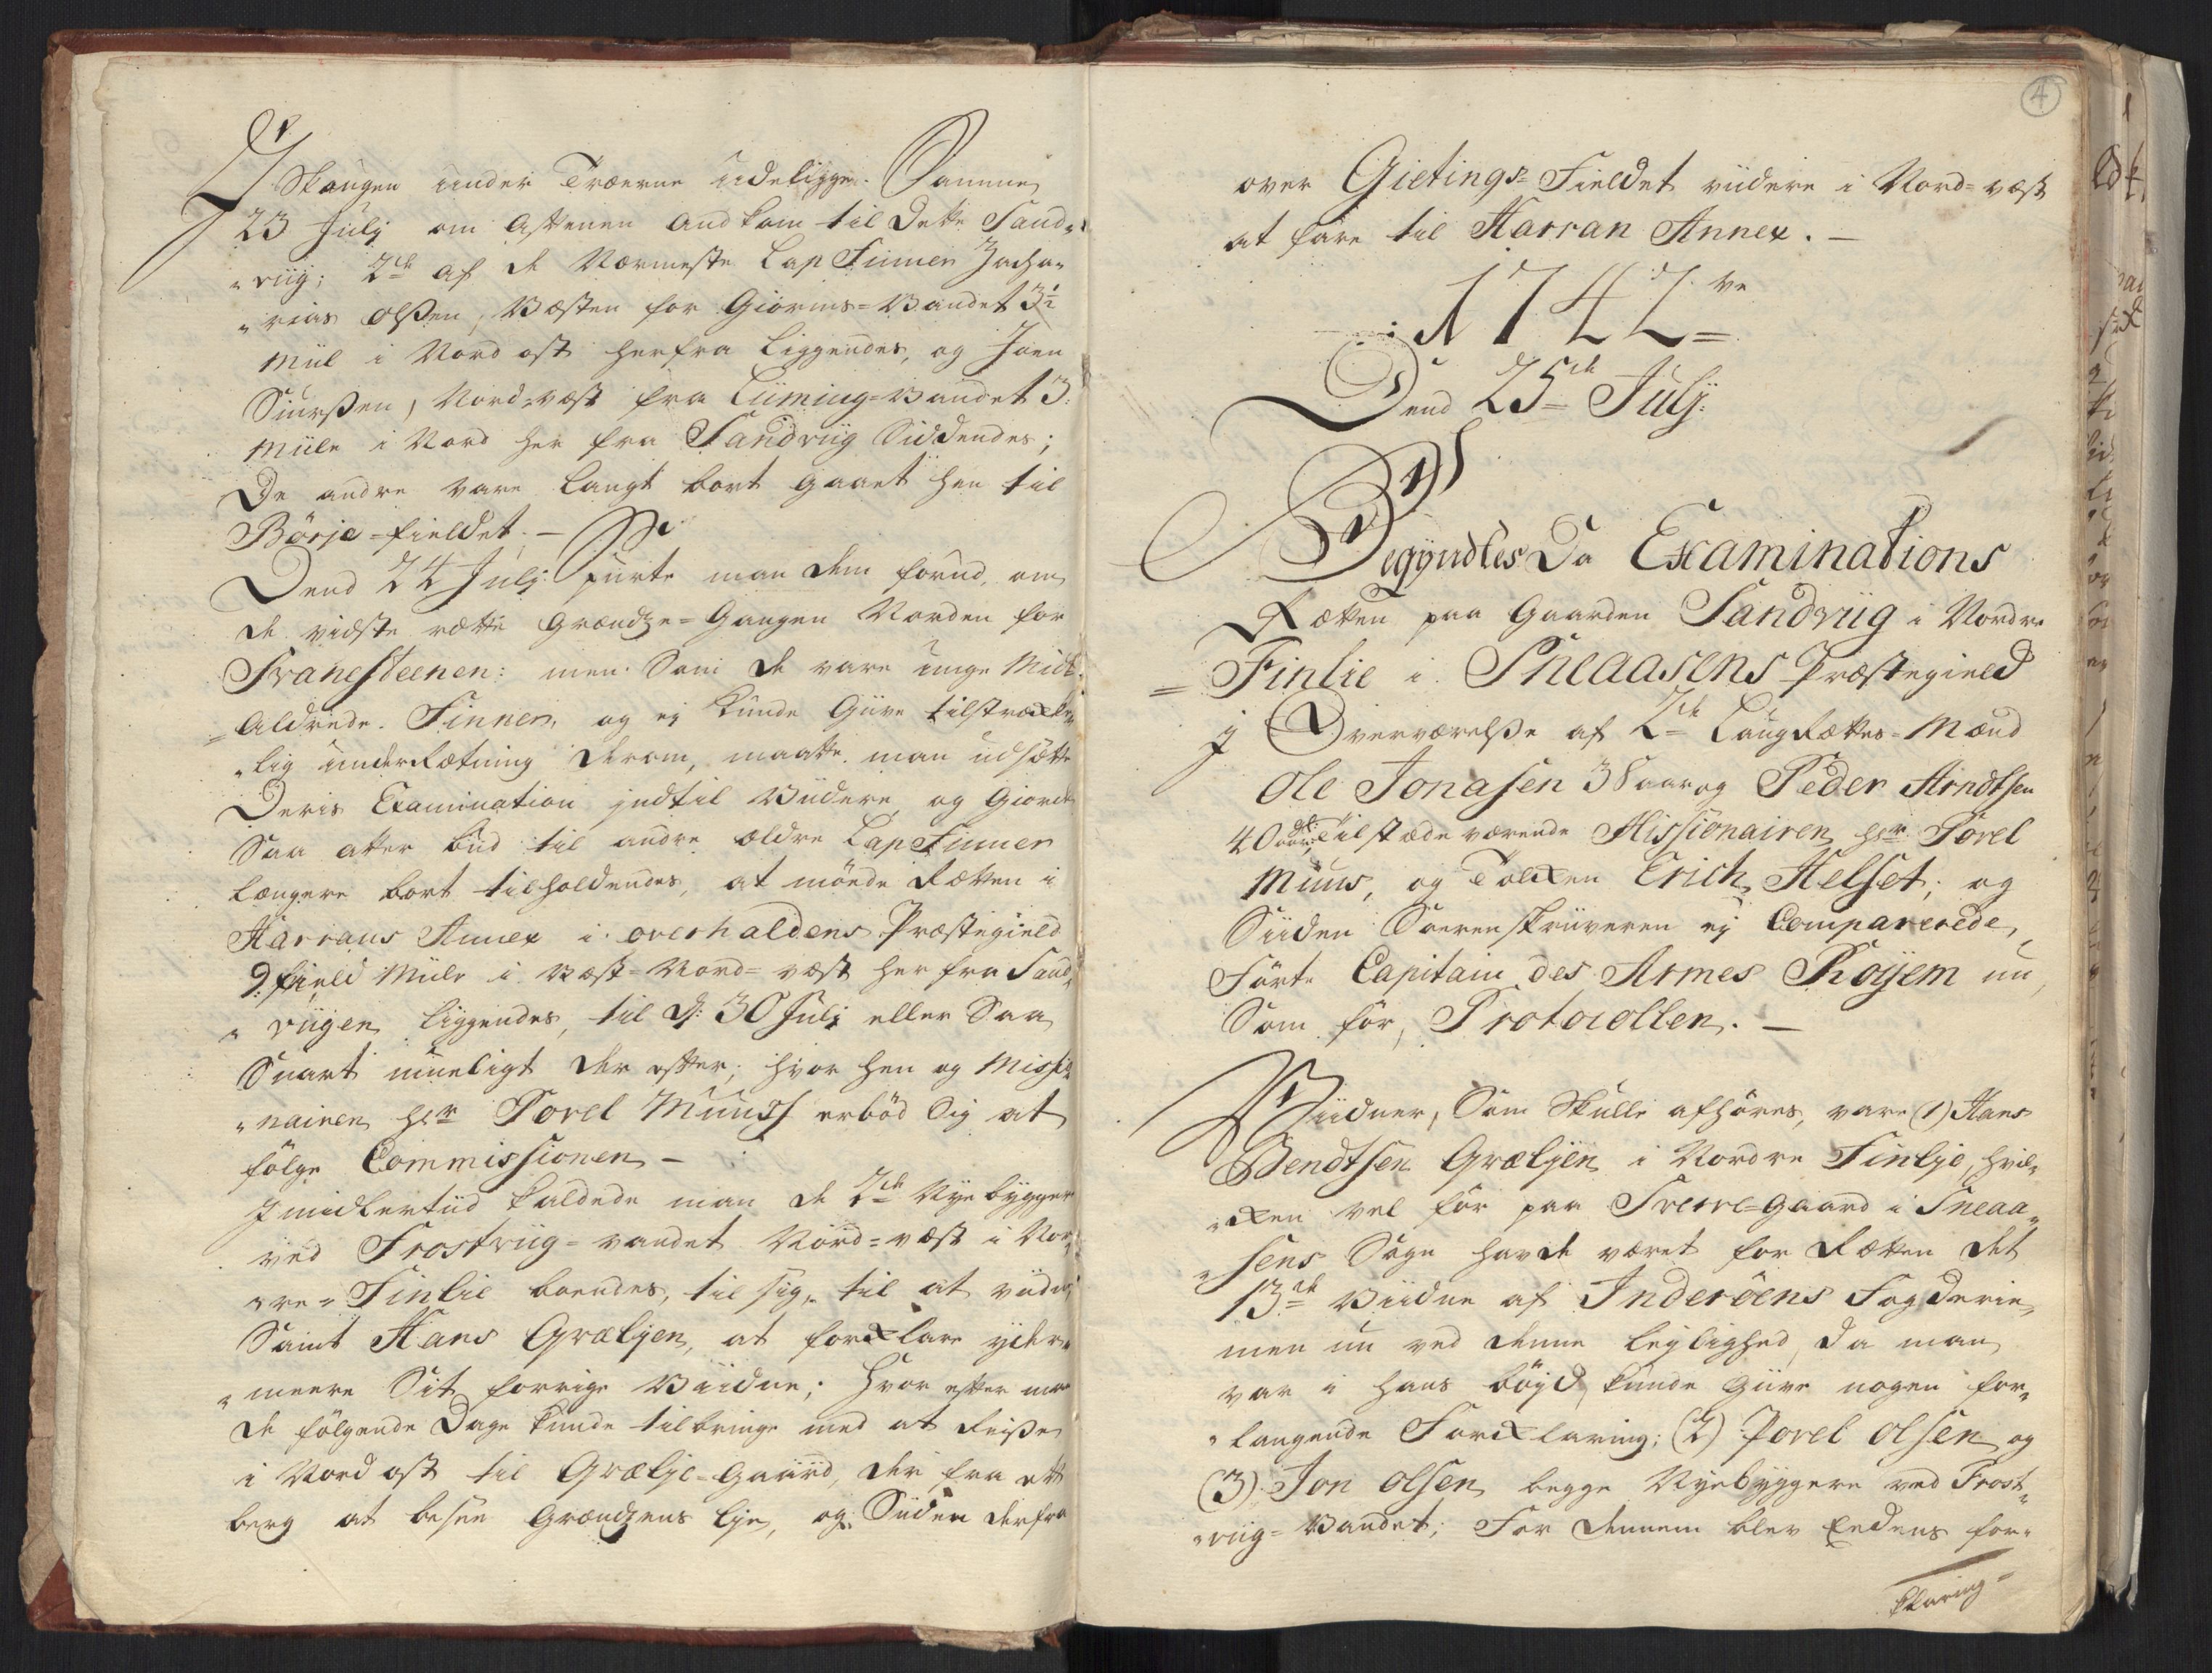 I Skougen under Træerne udeligge. Samme
23 July om Aftenen andkom til dette Sand„
„viig; 2de af de Nærmeste Lap Finner Zacha„
„rias Olßen, Vesten for Giorms=Vandet 3½
Miil i Nord ost herfra liggendes, og Joen
Siurßen, Nord=væst fra Liiming=Vandet 3:
Miile i Nord her fra Sandviig Siddendes;
De andre vare langt bort gaaet hen til
Börje=fieldet. —
Dend 24 July: spurte man dem forud, om
de vidste rætte Grændze=Gangen Norden for
Svanesteenen: men Som de vare unge Midl„
=Aldrede Finner, og ej kunde Giive tilstræcke„
„lig underRætning derom, maatte man udsætte
Deris Examination jndtil Viidere og Giorde
Saa atter bud til andre ældre Lap Finner
længere bort tilholdendes, at möede Rætten i
Harrans Annex i overhaldens Præstegield
9: field Miile i Væst=Nord=væst her fra Sand„
„viigen liggendes, til d: 30 July eller Saa
Snart mueligt der efter; hvor hen og Missio„
„nairen hr Povel Muus erböd Sig at
fölge Commissionen —
Jmidlertiid kaldede man de 2de Nye bygger
ved Frostviig=vandet Nord=væst i Nor„
„re=Finlie boendes, til sig, til at viidne,
Samt Hans Græljen, at forklare yder„
„meere Sit forrige Viidne; hvor efter man
de fölgende Dage kunde tilbringe med at Reiße
i Nord ost til Grælje=Gaard, der fra ett
berg at besee Grændzens lje, og Siiden derfra
4
over Gietings=Fieldet viidere i Nord=væst
at fare til Harran Annex. —
1742ve
Dend 25de July:
Begyndtes da Examinations
Rætten paa Gaarden Sandviig i Nordre
=Finlie i Sneaasens Præstegield
j Overværelße af 2de LaugRættes=Mænd
Ole Jonasen 38 aar og Peder Arndtsen
40 aar: Tilstædeværende Missionairen hr Povel
Muus, og Tolken Erich Helset; og
Siiden Sorenskriiveren ej Comparerede,
Förte Capitain des Armes Röyem nu,
Som för, Protocollen. —
Viidner, Som Skulle afhöres, vare (1) Hans
Bendtsen Græljen i Nordre Finlje, hvil„
„ken vel för paa Sverre=gaard i Sneaa„
„sens Sogn havde været for Rætten det
13de Viidne af Inderöens Fogderie,
men nu ved denne leylighed, da man
var i hans böyd, kunde Giive nogen for„
„langende Forklaring; (2) Povel Olsen og
(3) Jon Olsen begge Nyebyggere ved Frost„
„viig=Vandet; For dennem blev Eedens for„
klaring=